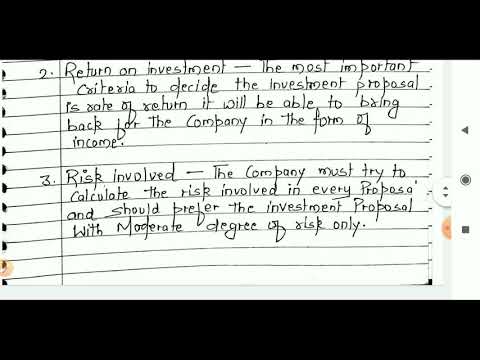 2. Return on investment — The most important
Criteria to decide the investment proposal
is rate of return it will be able to bring
back for The Company in the form of
income.
3. Risk involved — The Company must try to
Calculate the risk involved in every Proposal
and should prefer the investment Proposal
With Moderate degree of risk only.